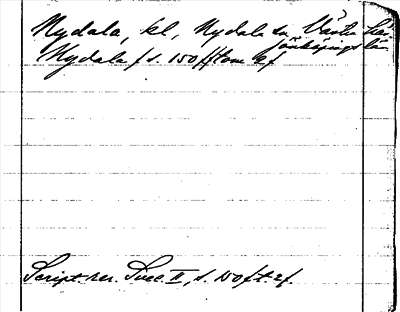 Nydala, kl, Nydala sn, Västra hd.
Jönköpings län
Nydala f s. 150 ff
Script. rer. Suec. II, s. 150 f.